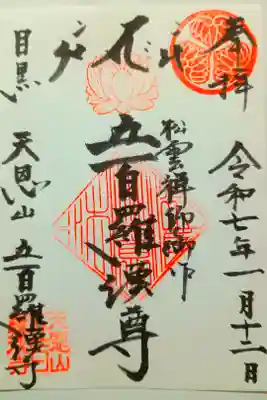 奉拝
令和七年一月十二日
松雲禅師御作
五百羅漢尊
目黒
天恩山 五百羅漢寺